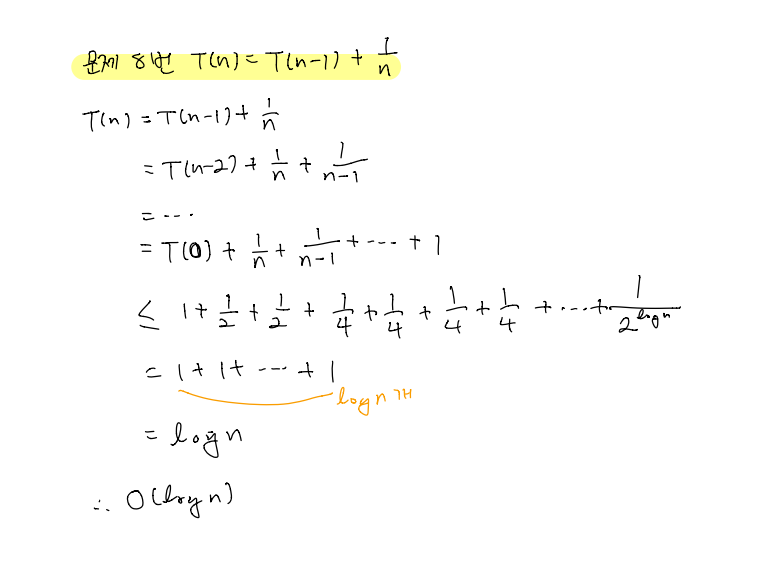 문제 8번 T(n) = T(n-1) + 1/n
T(n) = T(n-1) + 1/n
= T(n-2) + 1/n + 1/(n-1)
= ...
= T(0) + 1/n + 1/(n-1) + ... + 1
≤ 1 + 1/2 + 1/2 + 1/4 + 1/4 + 1/4 + 1/4 + ... + 1/2^(log n)
= 1 + 1 + ... + 1
log n 개
= log n
∴ O(log n)